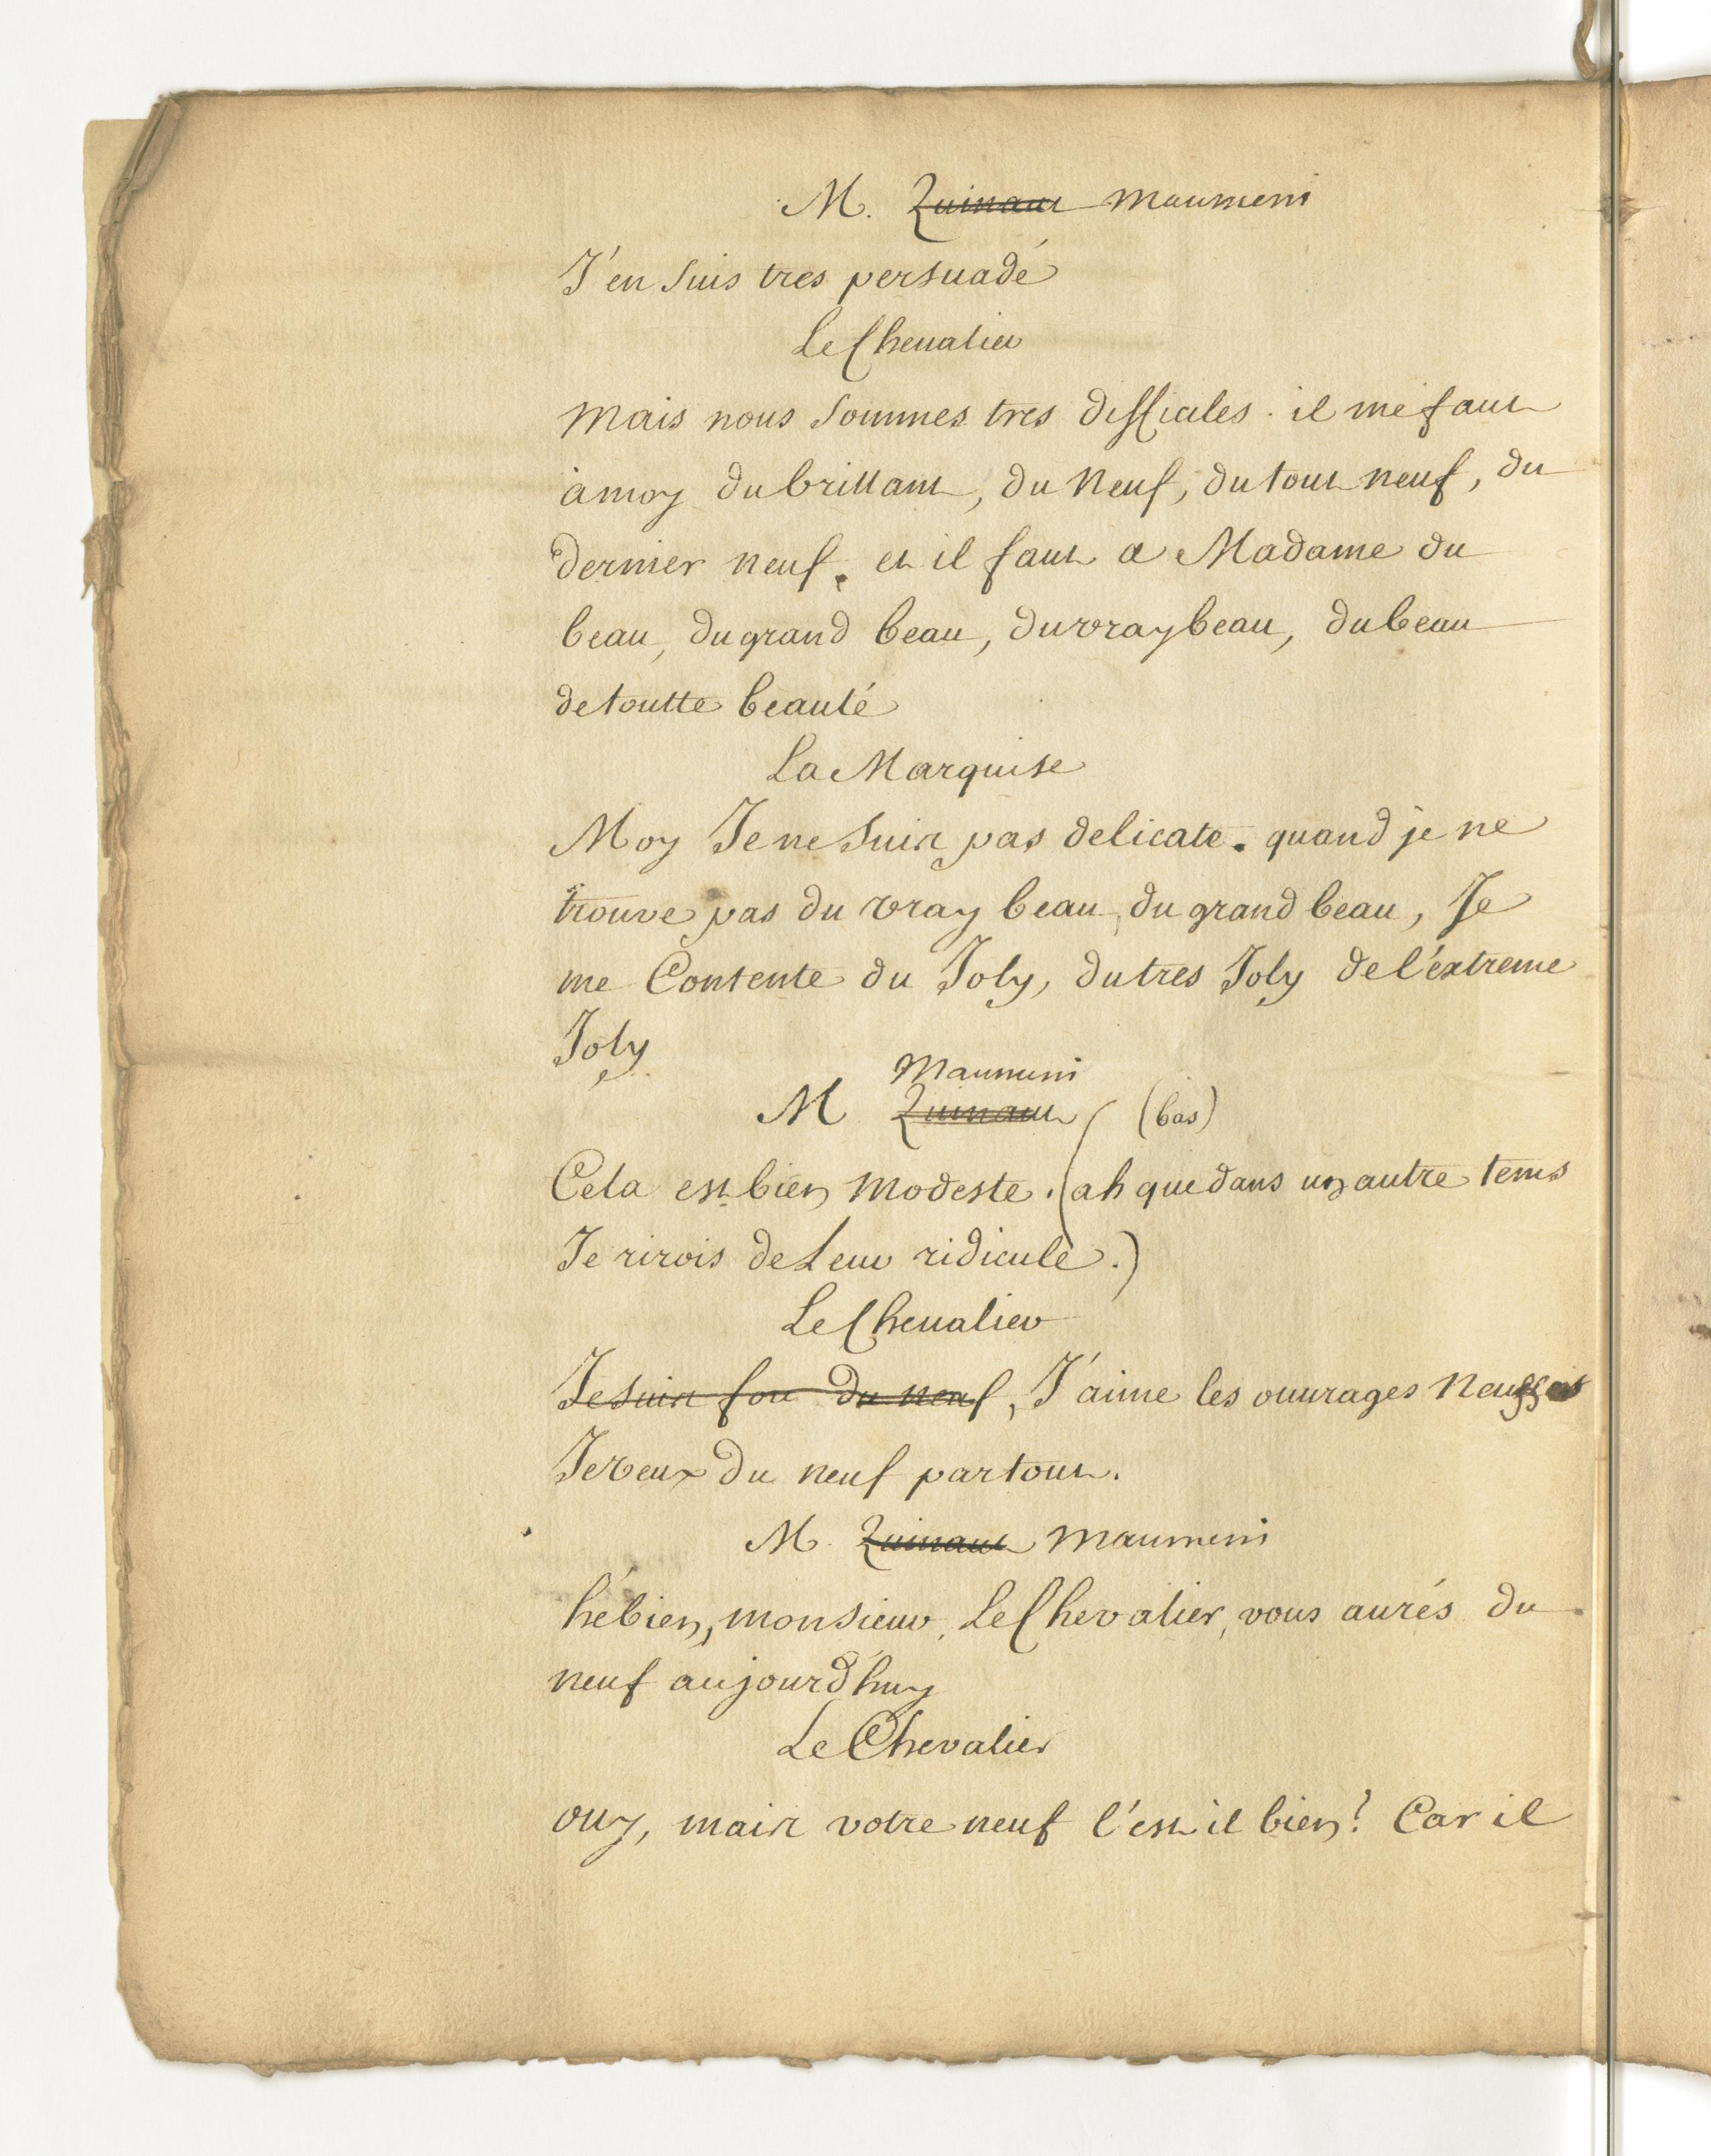 M. Quinaut Maumeni
J'en suis tres persuadé
Le Cheualier
Mais nous sommes tres difficiles. il me faut
a moy du brillant, du Neuf, du tout neuf, du
dernier neuf. et il faut a Madame du
beau, du grand beau, du vray beau, du beau
de toutte beauté
La Marquise
Moy Je ne suis pas delicate. quand je ne
trouve pas du vray beau, du grand beau, Je
me Contente du Joly, du tres Joly de l'éxtreme
Joly
Maumeni
M Quinaut (bas)
Cela est bien Modeste. (ah que dans un autre tems
Je rirois de Leur ridicule.)
Le Cheualier
Je suis fou du neuf, J'aime les ouurages Neufs et
Je veux du neuf partout.
M. Quinaut Maumeni
hé bien, monsieur, Le Chevalier, vous aurés du
neuf aujourd'huy
Le Chevalier
ouy, mais votre neuf l'est il bien? Car il